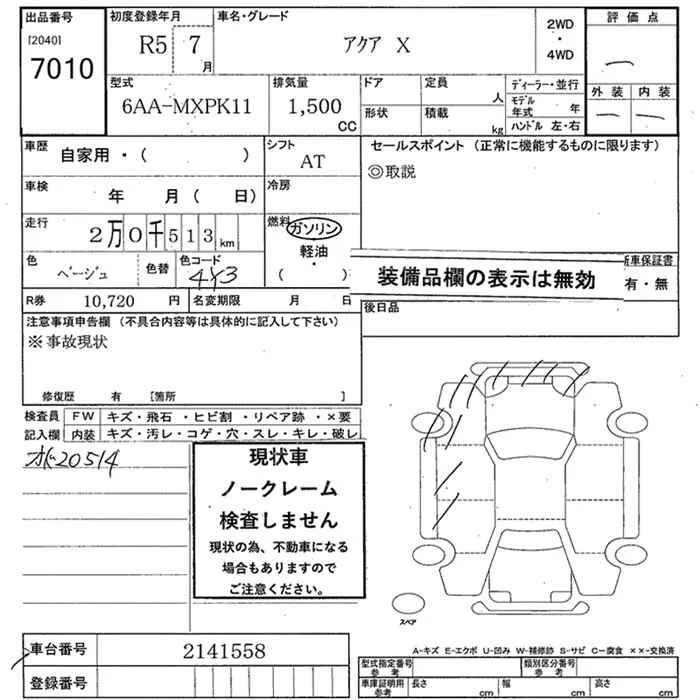 出品番号 初度登録年月 車名・グレード 2WD・4WD 評価点
[2040]
7010 R5 7月 アクア X
型式 排気量 ドア 定員 人 ディーラー・並行 外装 内装
6AA-MXPK11 1,500 CC 形状 積載 kg モデル年式 年
ハンドル 左・右
車歴 自家用・( ) シフト AT セールスポイント (正常に機能するものに限ります)
◎取説
車検 年 月 ( 日) 冷房
走行 2万0千513km 燃料 ガソリン
軽油・
( )
色 ベージュ 色替 色コード 4Y3
装備品欄の表示は無効
新車保証書
有・無
R券 10,720 円 名変期限 月 日 後日品
注意事項申告欄 (不具合内容等は具体的に記入して下さい)
※事故現状
修復歴 有 [箇所 ]
検査員 FW キズ・飛石・ヒビ割・リペア跡・×要
記入欄 内装 キズ・汚レ・コゲ・穴・スレ・キレ・破レ
20514
現状車
ノークレーム
検査しません
現状の為、不動車になる
場合もありますので
ご注意ください。
スペア
車台番号 2141558
登録番号
A-キズ E-エクボ U-凹み W-補修跡 S-サビ C-腐食 ××-交換済
型式指定番号 参考 類別区分番号 参考
車庫証明用 参考 長さ cm 幅 cm 高さ cm